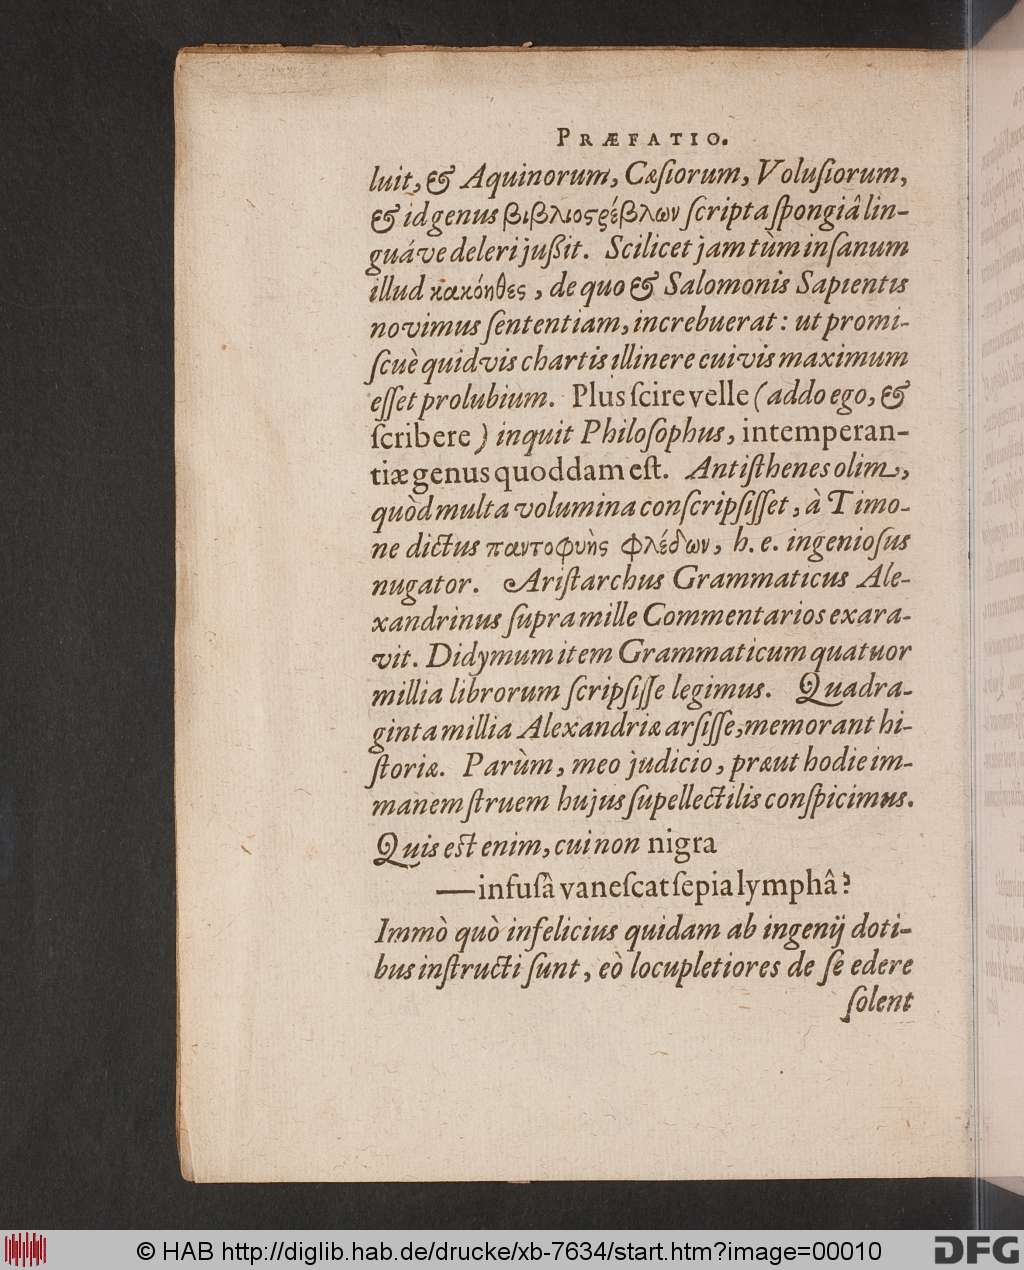 PRÆFATIO.
luit, & Aquinorum, Cæsiorum, Volusiorum,
& id genus βιβλιοςρέβλων scripta spongiâ lin-
guáve deleri jußit. Scilicet jam tùm insanum
illud κακόηθες, de quo & Salomonis Sapientis
novimus sententiam, increbuerat: ut promi-
scuè quidvis chartis illinere cuivis maximum
esset prolubium. Plus scire velle (addo ego, &
scribere) inquit Philosophus, intemperan-
tiæ genus quoddam est. Antisthenes olim,
quòd multa volumina conscripsisset, à Timo-
ne dictus παντοφυὴς φλέδων, h. e. ingeniosus
nugator. Aristarchus Grammaticus Ale-
xandrinus supra mille Commentarios exara-
vit. Didymum item Grammaticum quatuor
millia librorum scripsisse legimus. Quadra-
ginta millia Alexandriæ arsisse, memorant hi-
storiæ. Parùm, meo judicio, præut hodie im-
manem struem hujus supellectilis conspicimus.
Quis est enim, cui non nigra
—infusâ vanescat sepia lymphâ?
Immò quò infelicius quidam ab ingenij doti-
bus instructi sunt, eò locupletiores de se edere
solent
© HAB http://diglib.hab.de/drucke/xb-7634/start.htm?image=00010
DFG